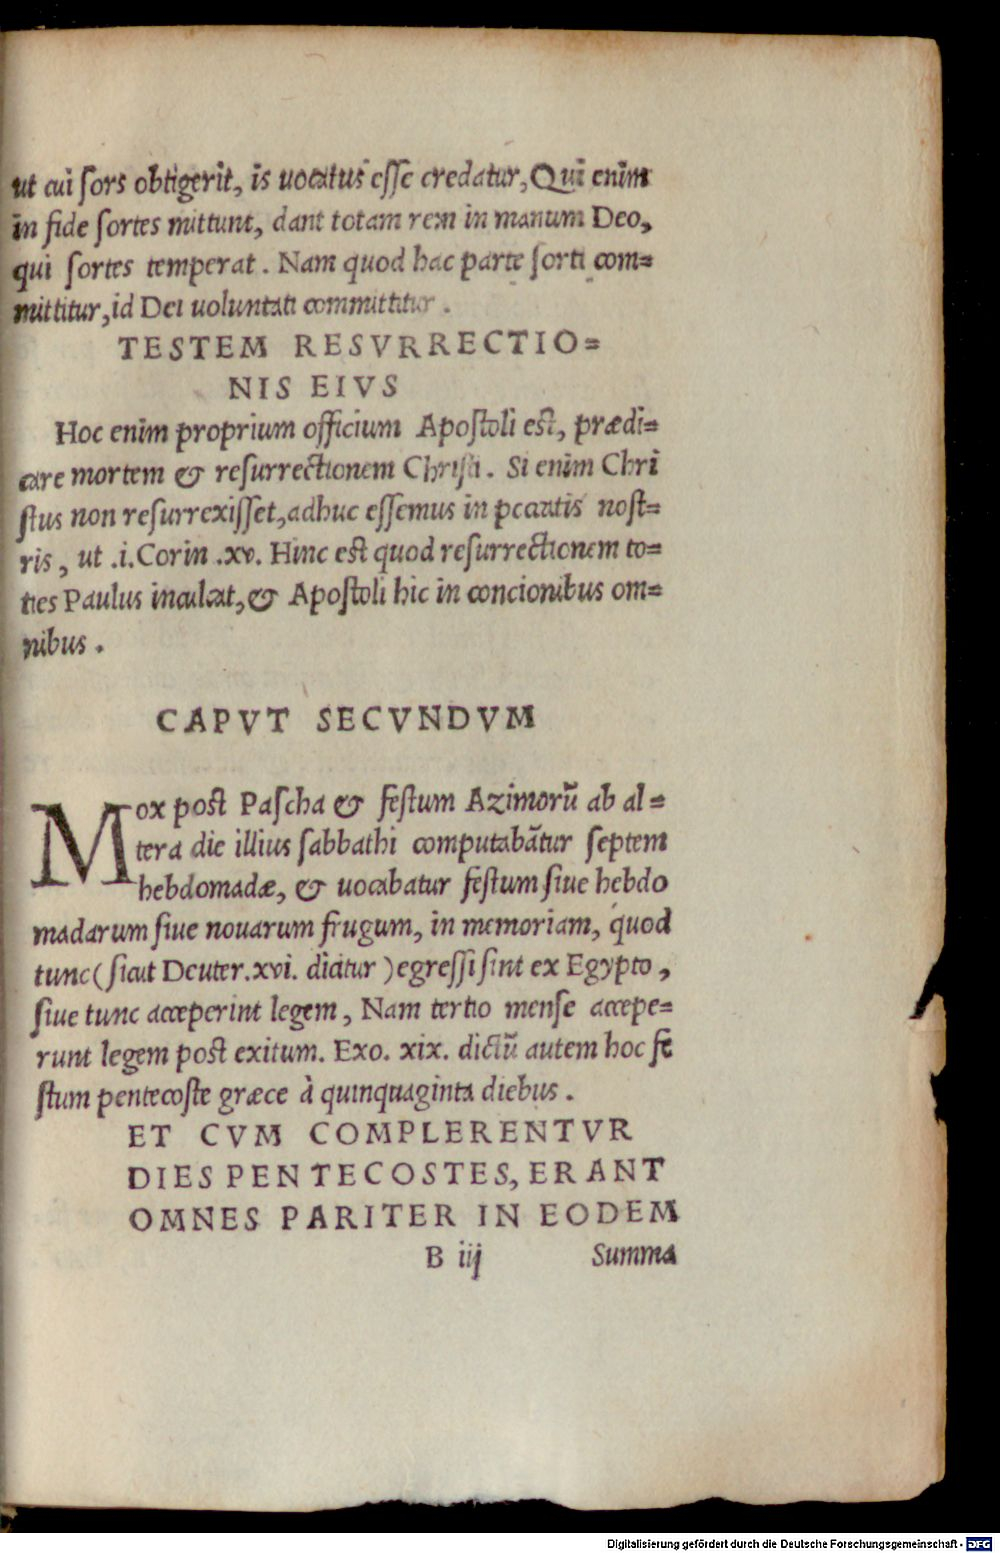 ut cui ſors obtigerit, is uocatus eſſe credatur, Qui enim
in fide ſortes mittunt, dant totam rem in manum Deo,
qui ſortes temperat. Nam quod hac parte ſorti com=
mittitur, id Dei uoluntati committitur.
TESTEM RESVRRECTIO=
NIS EIVS
Hoc enim proprium officium Apoſtoli eſt, prædi=
care mortem & reſurrectionem Chriſti. Si enim Chri
ſtus non reſurrexiſſet, adhuc eſſemus in pecatis noſt=
ris, ut .i. Corin .xv. Hinc eſt quod reſurrectionem to=
ties Paulus inculcat, & Apoſtoli hic in concionibus om=
nibus.
CAPVT SECVNDVM
Mox poſt Paſcha & feſtum Azimorũ ab al=
tera die illius ſabbathi computabãtur ſeptem
hebdomadæ, & uocabatur feſtum ſiue hebdo
madarum ſiue nouarum frugum, in memoriam, quod
tunc (ſicut Deuter. xvi. dicitur) egreſſi ſint ex Egypto,
ſiue tunc acceperint legem, Nam tertio menſe accepe=
runt legem poſt exitum. Exo. xix. dictũ autem hoc fe
ſtum pentecoſte græce à quinquaginta diebus.
ET CVM COMPLERENTVR
DIES PENTECOSTES, ERANT
OMNES PARITER IN EODEM
B iij Summa
Digitalisierung gefördert durch die Deutsche Forschungsgemeinschaft - DFG